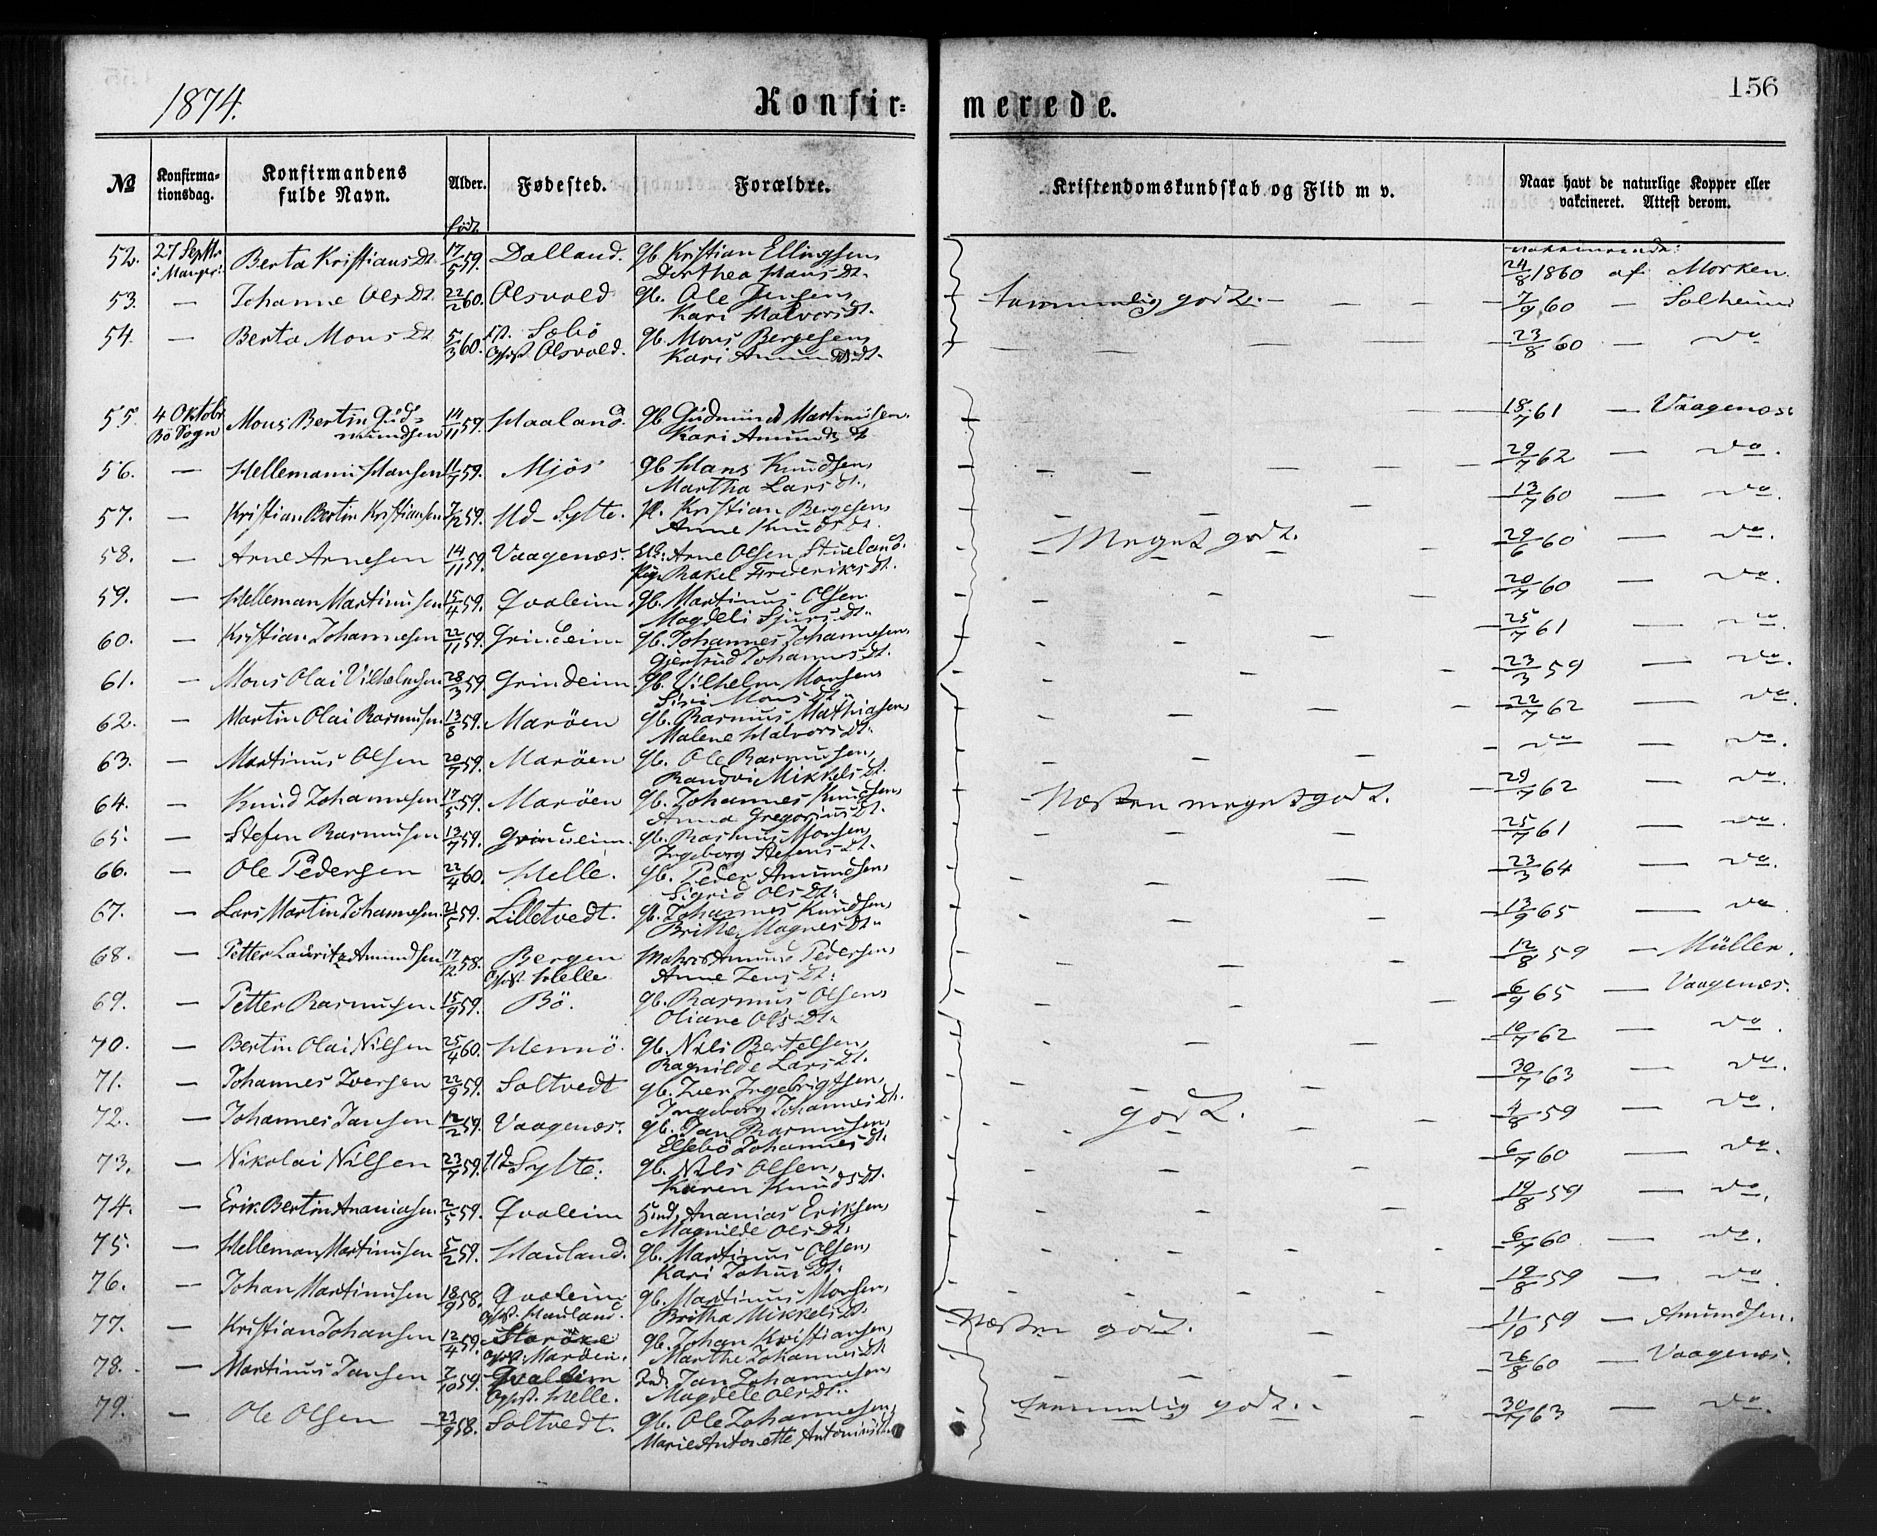 1874. Konfir= merede. 156
№ Konfirma-tionsdag. Konfirmandens fulde Navn. Alder. Fødested. Forældre. Kristendomskundskab og Flid m v. Naar havt de naturlige Kopper eller vakcineret. Attest derom.
født
52. 27 Septbr i Manger: Berta Kristians Dt. 17/5 59. Dalland. Gb. Kristian Ellingsen, 24/8 1860 af Morken
Dorthea Hans Dt.
53. — Johanne Ols Dt. 22/2 60. Olsvold Gb. Ole Jensen, temmelig godt. — 7/9 60 — Solheim
Kari Halvors Dt.
54. — Berta Mons Dt. 5/3 60. Sæbö Gb. Mons Bergesen, 23/8 60 — do
Opf. Olsvold. Kari Amunds Dt.
55. 4 Oktobr Bö Sogn Mons Bertin Gud= 14/11 59. Haaland. Gb. Gudmund Martinusen. 18/7 61 — Vaagenæs
mundsen Kari Amunds Dt.
56. — Hellemann Hansen 11/7 59. Mjös Gb. Hans Knudsen, 29/7 62 — do.
Martha Lars Dt.
57. — Kristian Bertin Kristiansen 7/12 59. Ud-Sylte. Pl. Kristian Bergesen, 13/7 60 — do.
Anne Knuds Dt.
58. — Arne Arnesen 14/11 59. Vaagenæs. Arne Olsen Stueland. Meget godt. 29/6 60 — do.
Pige Rakel Frederiks Dt.
59. — Helleman Martinusen 15/4 59. Qvaleim Gb. Martinus Olsen 20/7 60 — do.
Magdeli Sjurs Dt.
60. — Kristian Johannesen 22/11 59. Grindeim Gb. Johannes Johannesen, 25/7 61 — do.
Gjertrud Johannes Dt.
61. — Mons Olai Vilhelmsen 28/3 59. Grindeim Gb. Vilhelm Monsen 23/3 59 — do.
Siri Mons Dt.
62. — Martin Olai Rasmusen 13/8 59. Maröen Gb. Rasmus Mathiasen, 22/7 62 — do.
Malene Halvors Dt.
63. — Martinus Olsen 20/7 59. Maröen Gb. Ole Rasmusen, — do — do.
Randvi Mikkels Dt.
64. — Knud Johannesen 17/5 59. Maröen Gb. Johannes Knudsen, Næsten meget godt. 29/7 62 — do.
Anna Gregorius Dt.
65. — Stefen Rasmusen 13/7 59. Grindeim. Gb. Rasmus Monsen, 25/7 61 — do.
Ingeborg Stefens Dt.
66. — Ole Pedersen 22/4 60. Helle. Gb. Peder Amundsen, 23/3 64 — do.
Sigrid Ols Dt.
67. — Lars Martin Johannesen 21/5 59. Lilletvedt. Gb. Johannes Knudsen, 13/9 65 — do
Brithe Magnes Dt.
68. — Petter Lauritz Amundsen 17/12 58. Bergen Matros Amund Pedersen, 12/8 59 — Müller.
Opf. Helle Anne Jens Dt.
69. — Petter Rasmusen 15/9 59. Bö. Gb. Rasmus Olsen, 6/9 65 — Vaagenæs.
Oliane Ols Dt.
70. — Bertin Olai Nilsen 25/4 60. Hennö. Gb. Nils Bertelsen, 10/7 62 — do.
Ragnilde Lars Dt.
71. — Johannes Iversen 22/9 59. Soltvedt Gb. Iver Ingebrigtsen, 30/7 63 — do.
Ingeborg Johannes Dt.
72. — Johannes Jansen 12/2 59. Vaagenæs. Gb. Jan Rasmusen, godt. 4/8 59 — do.
Elsebö Johannes Dt.
73. — Nikolai Nilsen 23/7 59. Ud-Sylte. Gb. Nils Olsen, 6/7 60 — do.
Karen Knuds Dt.
74. — Erik Bertin Ananiasen. 2/5 59. Qvaleim Ananias Eriksen, 19/8 59 — do.
Magnilde Ols Dt.
75. — Helleman Martinusen 5/2 59. Hauland. Gb. Martinus Olsen, 6/7 60 — do.
Kari Johns Dt.
76. — Johan Martinusen 18/9 58. Qvaleim Gb. Martinus Monsen, 19/8 59 — do.
Opf. Hauland. Britha Mikkels Dt.
77. — Kristian Johansen 12/4 59. Gb. Johan Kristiansen, Næsten godt. 11/10 59 — Amundsen.
Opf. Maröen. Marthe Johannes Dt.
78. — Martinus Jansen 7/10 59. Qvaleim Jan Johannesen 26/8 60 — Vaagenæs.
Opf. Helle. Magdele Ols Dt.
79. — Ole Olsen 29/9 58. Soltvedt. Gb. Ole Johannesen, temmelig godt. 30/7 63 — do.
Marie Antonette Antonius Dt.